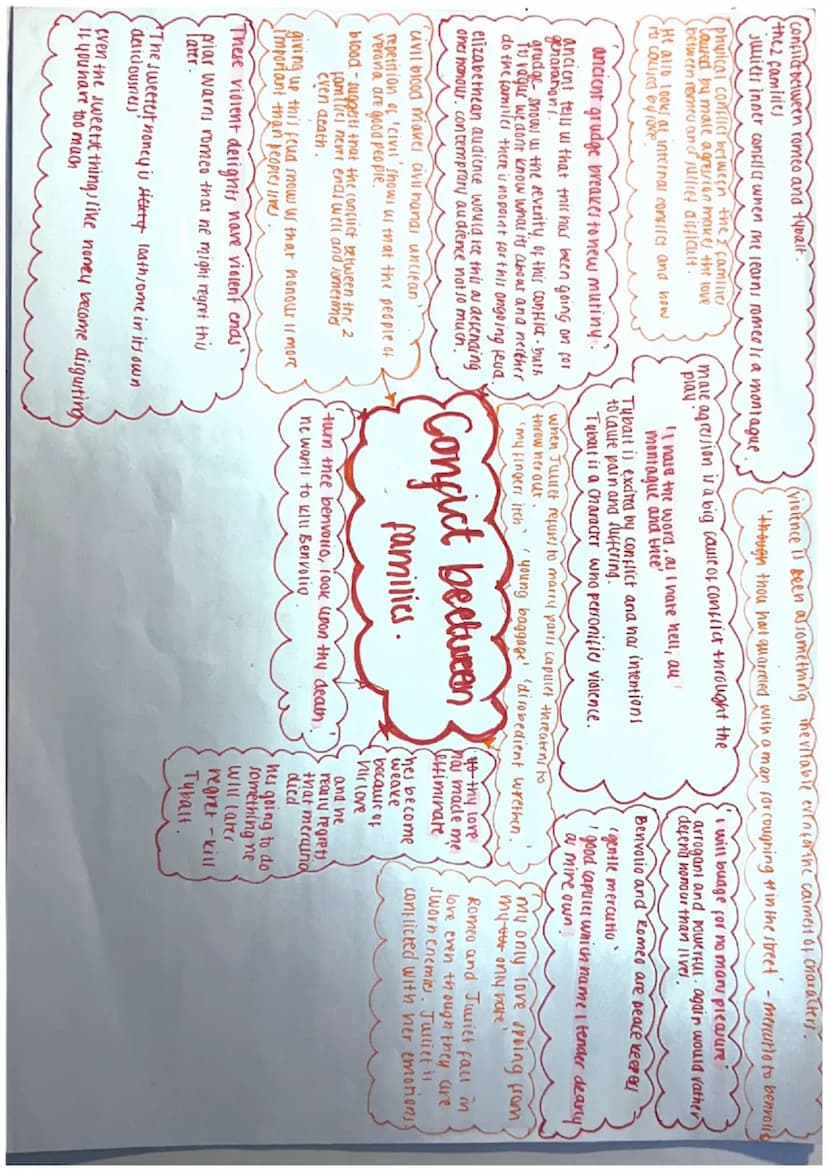 conflict between romeo and tybalt.
the 2 families
juliets inner conflict when she learns romeo is a montague.
physical conflict between the 2 families
caused by male agression makes the love
between romeo and juliet difficult.
He also look at internal conflict and how
its caused by love.
'ancient grudge breakes to new mutiny'.
ancient tells us that this has been going on for
generations.
grudge - shows us the severity of this conflict - but its
to vague we dont know what its about and neither
do the families there is no point for this ongoing feud.
elizabethean audience would see this as defending
ones honour. contemporary audience not so much.
civil blood makes civil hands unclean'
repetition of 'civil' shows us that the people of
verona are good people.
blood - suggests that the conflict between the 2
families never ends well and sometimes
even death.
giving up this feud shows us that honour is more
important than peoples lives.
These violent delights have violent ends'
friar warns romeo that he might regret this
later.
'The sweetest honey is loathsome in its own
deliciousness'
even the sweetest things like honey become disgusting
if you have too much
violence is seen as something inevitable even for the calmest of characters.
'though thou hast quarreled with a man for coughing in the street' - mercutio to benvolio
male agression is a big cause of conflict throught the
play.
'I hate the word, as I hate hell, all
montague and thee'
Tybalt is excited by conflict and has intentions
to cause pain and suffering.
Tybalt is a character who personifies violence.
when Juliet refuses to marry paris capulet threatens to
throw her out.
'my fingers itch' 'young baggage' 'disobedient wrethen'
Conflict beetween
families.
'turn thee benvolio, look upon thy death'
he wants to kill Benvolio.
'i will budge for no mans pleasure'
arrogant and powerful. again would rather
defend honour than lives.
Benvolio and Romeo are peace keepers
'gentle mercutio'
'good capulet which name I tender dearly
as mine own'
thy love
has made me
effiminate'
hes become
weake
because of
his love
and he
really regrets
that mercutio
died
hes going to do
something he
will later
regret - kill
Tybalt.
my only love spring from
my only hate'
Romeo and Juliet fall in
love even though they are
sworn enemies. Juliet is
conflicted with her emotions